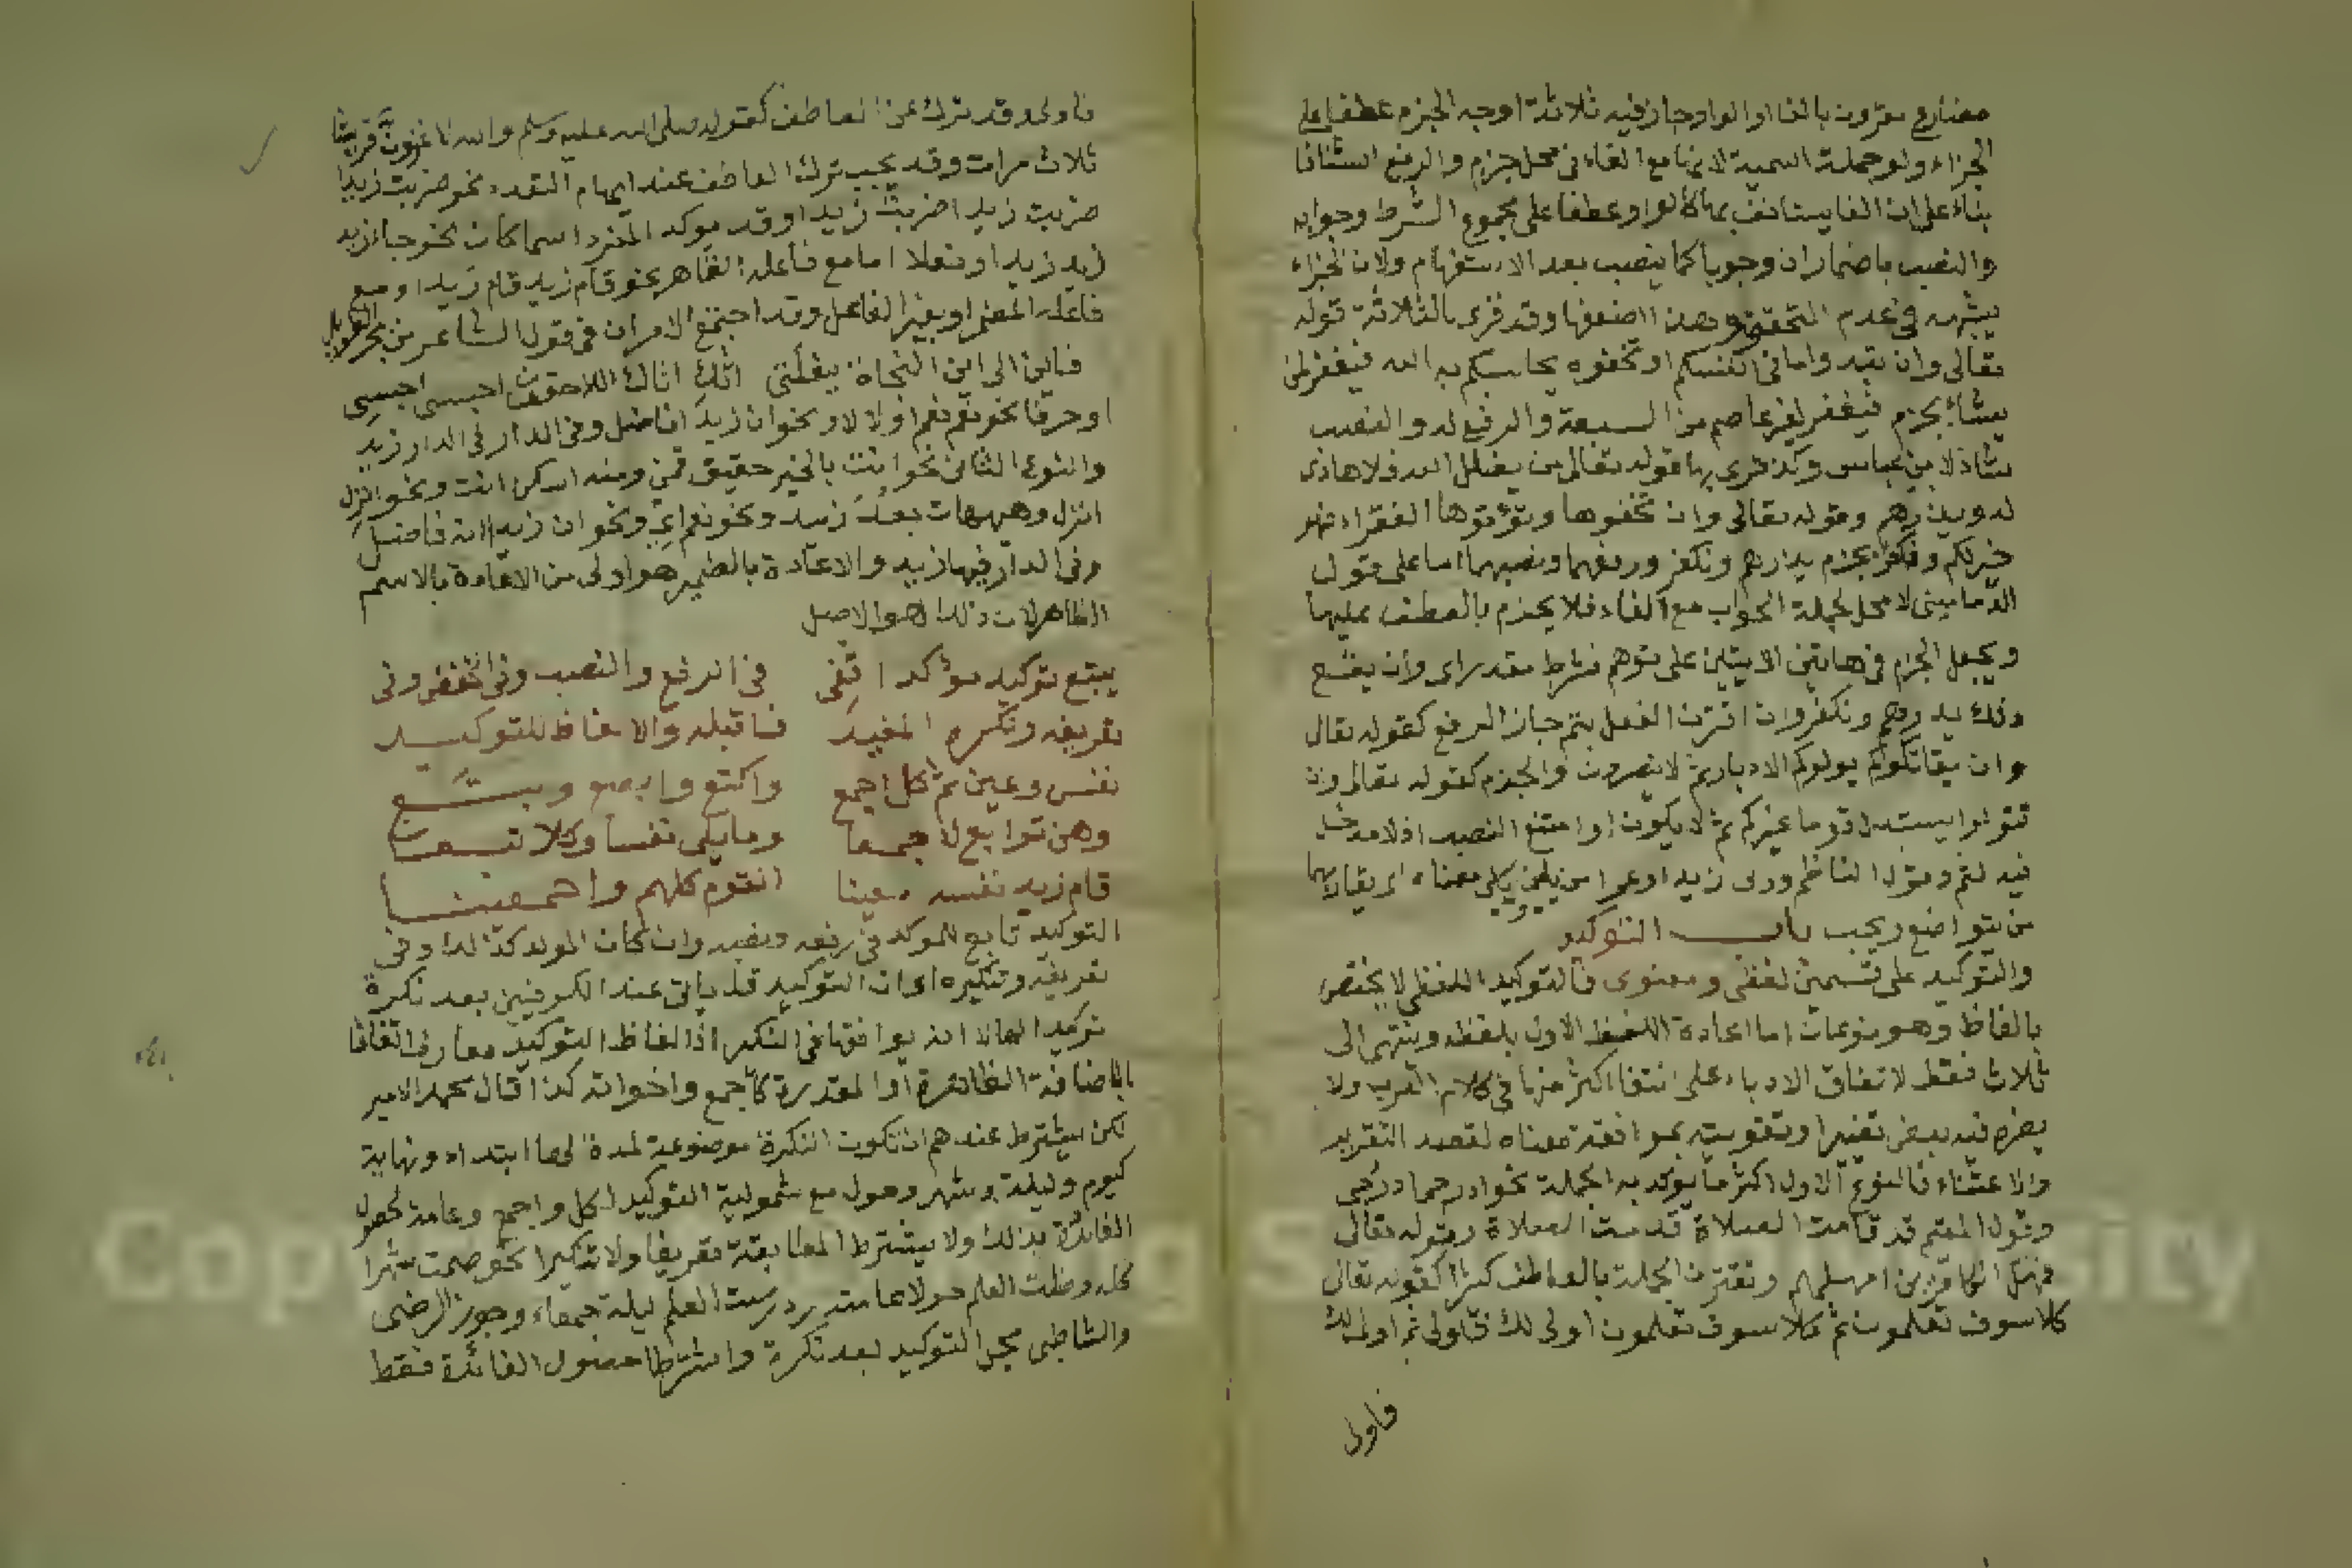 مضارع مقرون بالفا او الواو جاز فيه ثلاثة اوجه الجزم عطفا على
الجزاء ولو جملة اسمية لانها مع الفاء في محل جزم والرفع استئنافا
بناء على ان الفا يستانف بها كالواو وعطفا على مجموع الشرط وجوابه
والنصب باضمار ان وجوبا كما ينصب بعد الاستفهام ولان الجزاء
يشبهه في عدم التحقق وهذا اضعفها وقد قرى بالثلاثة قوله
تعالى وان تبدوا ما في انفسكم او تخفوه يحاسبكم به الله فيغفر لمن
يشاء بجزم فيغفر لغير عاصم من السبعة والرفع له والنصب
شاذ لابن عباس وكذ قرى بها قوله تعالى من يضلل الله فلا هادى
له ويذرهم وقوله تعالى وان تخفوها وتؤتوها الفقراء فهو
خير لكم ونكفر بجزم يذرهم ونكفر ورفعهما ونصبهما اما على قول
الدماميني لا محل لجملة الجواب مع الفاء فلا يجزم بالعطف عليها
ويجعل الجزم في هاتين الايتين على توهم شرط مقدر اى وان يقع
ذلك يذرهم ونكفر وان اقترن الفعل بثم جاز الرفع كقوله تعالى
وان يقاتلوكم يولوكم الادبار ثم لا ينصرون والجزم كقوله تعالى وان
تتولوا يستبدل قوما غيركم ثم لا يكونوا وامتنع النصب اذ لا مدخل
فيه لثم وقول الناظم ورى زيدا وعمرا من يلين معناه
من تواضع ويجب باب التوكيد
والتوكيد على قسمين لفظى ومعنوى فالتوكيد اللفظى لا يختص
بالفاظ وهو نوعان اما اعادة اللفظ الاول بلفظه وينتهى الى
ثلاث فقط لاتفاق الادباء على انتفا اكثر منها في كلام العرب ولا
يضره فيه بعض تغيير او تقويته بموافقة معناه لقصد التقرير
والاعتناء فالنوع الاول اكثر ما يوكد به الجملة نحو ادرجي ادرجي
وقول المقيم قد قامت الصلاة قد قامت الصلاة وقوله تعالى
فمهل الكافرين امهلهم وتقترن الجملة بالعاطف كثيرا كقوله تعالى
كلا سوف تعلمون ثم كلا سوف تعلمون اولى لك فاولى ثم اولى لك
فاولى
فاولى وقد ترك عن العاطف كقوله صلى الله عليه وسلم والله لاغزون قريشا
ثلاث مرات وقد يجب ترك العاطف عند ايهام التعدد نحو ضربت زيدا
ضربت زيدا ضربت زيدا وقد يوكد المفرد اسما كان نحو جاء زيد
زيد زيد او فعلا اما مع فاعله الظاهر نحو قام زيد قام زيد او مع
فاعله المضمر او بغير الفاعل وقد اجتمع الامران في قول الشاعر من بحر الطويل
فاين الى اين النجاة ببغلتى اتاك اتاك اللاحقون احبسى احبسى
او حرفا نحو نعم نعم او لا لا ونحو ان زيدا ان زيدا فاضل وفي الدار في الدار زيد
والنوع الثانى نحو انت بالخير حقيق قمن ومنه اسكن انت ونحو انزل
انزل وهيهات بعد زيد ونحو نعم اى ونحو ان زيدا انه فاضل
وفي الدار فيها زيد والاعادة بالضمير هو اولى من الاعادة بالاسم
الظاهر لان ذلك هو الاصل
يتبع توكيد مؤكدا قفى في الرفع والنصب وفي الخفض وفى
تعريفه ونكره المفيد فاقبله والالفاظ للتوكيد
نفس وعين ثم كل اجمع واكتع وابصع وبتع
وهي توابع لاجمعا وما بكى نفسا وكلا تبعا
قام زيد نفسه وعينا القوم كلهم واجمعينا
التوكيد تابع للموكد في رفعه ونصبه وان كان الموكد كذلك وفي
تعريفه وتنكيره اى ان التوكيد قد ياتى عند الكوفيين بعد نكرة
توكيدا لها لا انه يوافقها في التنكير اذ الفاظ التوكيد معارف اتفاقا
بالاضافة الظاهرة او المقدرة كاجمع واخواته كذا قال محمد الامير
لكن يشترط عندهم ان تكون النكرة موضوعة لمدة لها ابتداء ونهاية
كيوم وليلة وشهر وحول مع شمولية التوكيد لكل واجمع وعامة لحصول
الفائدة بذلك ولا يشترط المطابقة تعريفا ولا تنكيرا نحو صمت شهرا
كله وطلبت العلم حولا عامته ودرست العلم ليلة جمعاء وجوز الرضى
والشاطبى مجئ التوكيد بعد نكرة واشترطا حصول الفائدة فقط